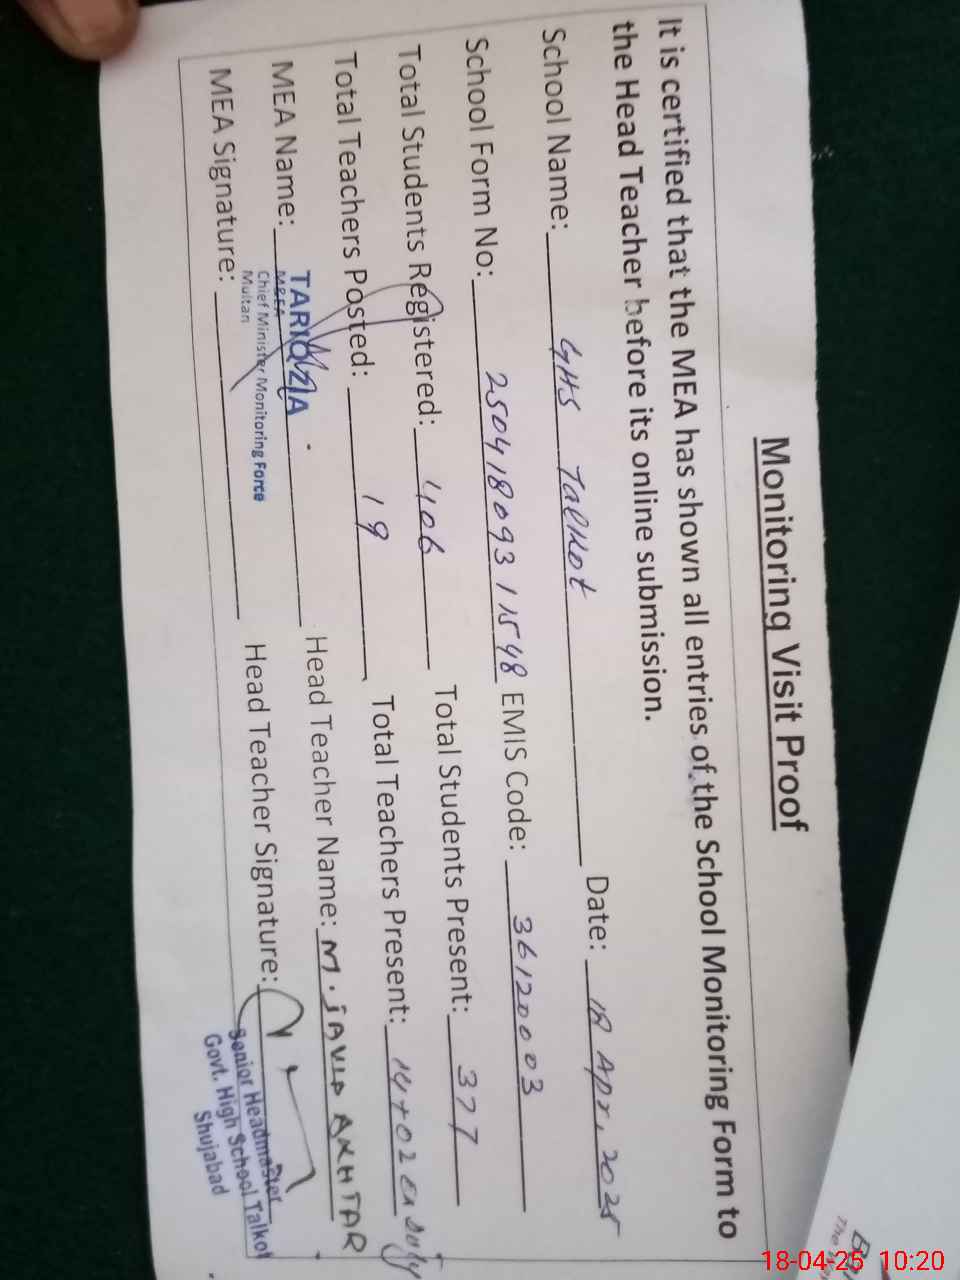 Monitoring Visit Proof
It is certified that the MEA has shown all entries of the School Monitoring Form to
the Head Teacher before its online submission.
School Name: GHS Talkot Date: 18 Apr, 2025
School Form No: 250418093 11548 EMIS Code: 36120003
Total Students Registered: 406 Total Students Present: 377
Total Teachers Posted: 19 Total Teachers Present: 14+02 on duty
MEA Name: TARIQ ZIA Head Teacher Name: M. JAVID AKHTAR
M&EA
Chief Minister Monitoring Force
Multan
MEA Signature: Head Teacher Signature:
Senior Headmaster
Govt. High School Talkot
Shujabad
The
18-04-25 10:20